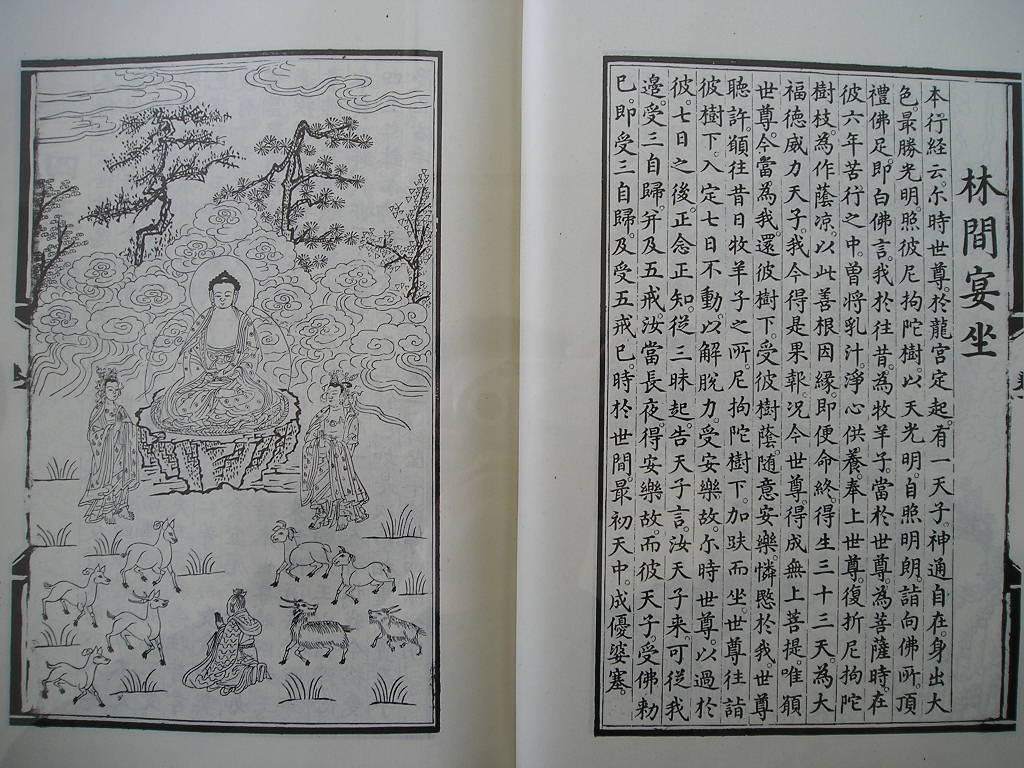 林間宴坐
本行経云。尒時世尊。於龍宫定起。有一天子。神通自在。身出大
色。最勝光明。照彼尼拘陀樹。以天光明。自照明朗。詣向佛所。頂
禮佛足。即白佛言。我於往昔。為牧羊子。當於世尊。為菩薩時。在
彼六年苦行之中。曽將乳汁。淨心供養。奉上世尊。復折尼拘陀
樹枝。為作蔭凉。以此善根因緣。即便命終。得生三十三天。為大
福徳威力天子。我今得是果報。况今世尊。得成無上菩提。唯願
世尊。今當為我。還彼樹下。受彼樹蔭。随意安樂。憐愍於我。世尊
聽許。願往昔日牧羊子之所。尼拘陀樹下。加趺而坐。世尊往詣
彼樹下。入定七日不動。以解脫力。受安樂故。尒時世尊。以過於
彼。七日之後。正念正知。從三昧起。告天子言。汝天子来。可從我
邊。受三自歸。并及五戒。汝當長夜。得安樂故。而彼天子。受佛勑
已。即受三自歸。及受五戒已。時於世間。最初天中。成優婆塞。